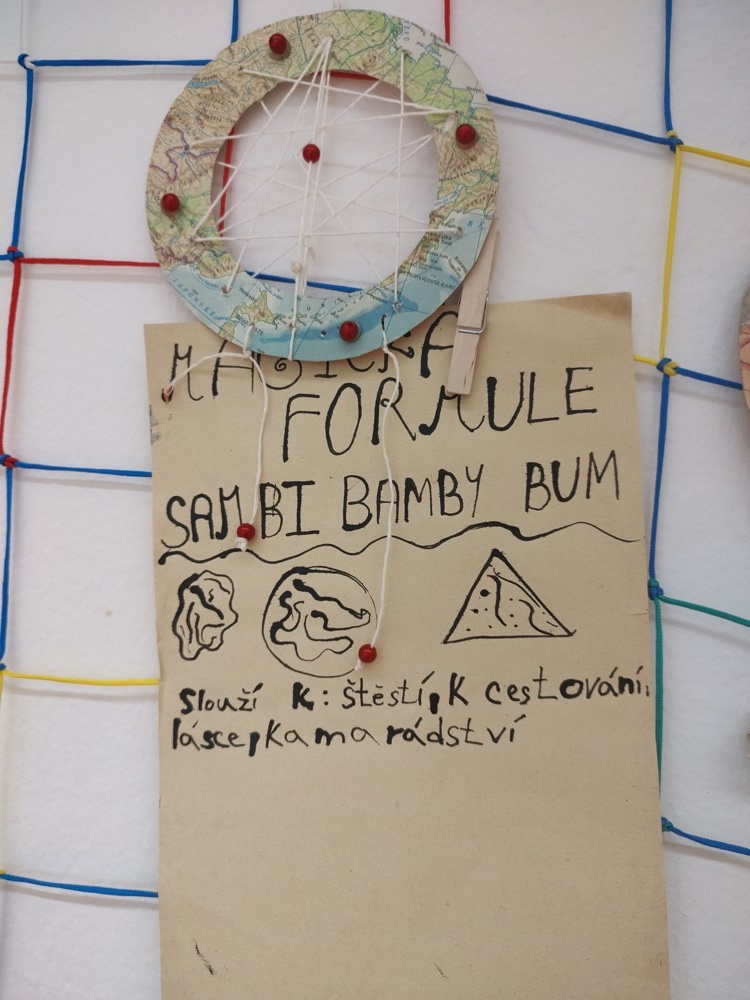 MAGICKÁ
FORMULE
SAMBI BAMBY BUM
Slouží K: štěstí, K cestování,
lásce, kamarádství